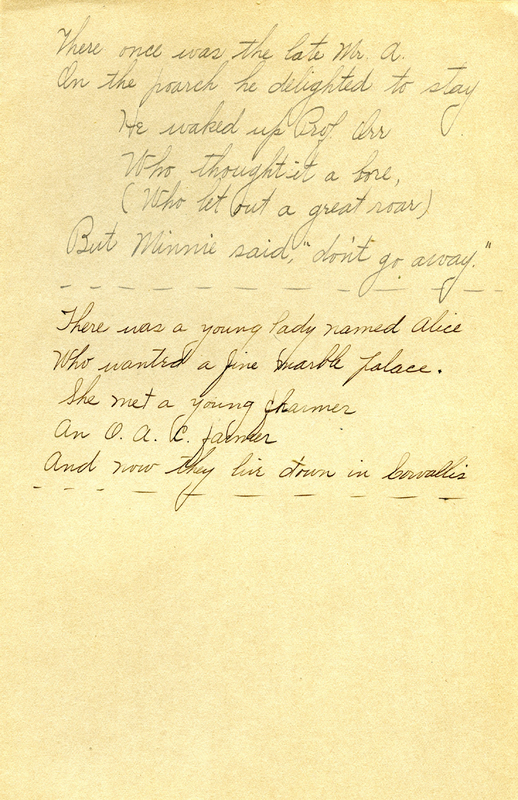 There once was the late Mr. A.
On the poarch he delighted to stay
He waked up Prof Orr
Who thought it a bore,
(Who let out a great roar)
But Minnie said, "don't go away."
There was a young lady named Alice
Who wanted a fine marble palace.
She met a young charmer
An O. A. C. farmer
And now they live down in Corvallis